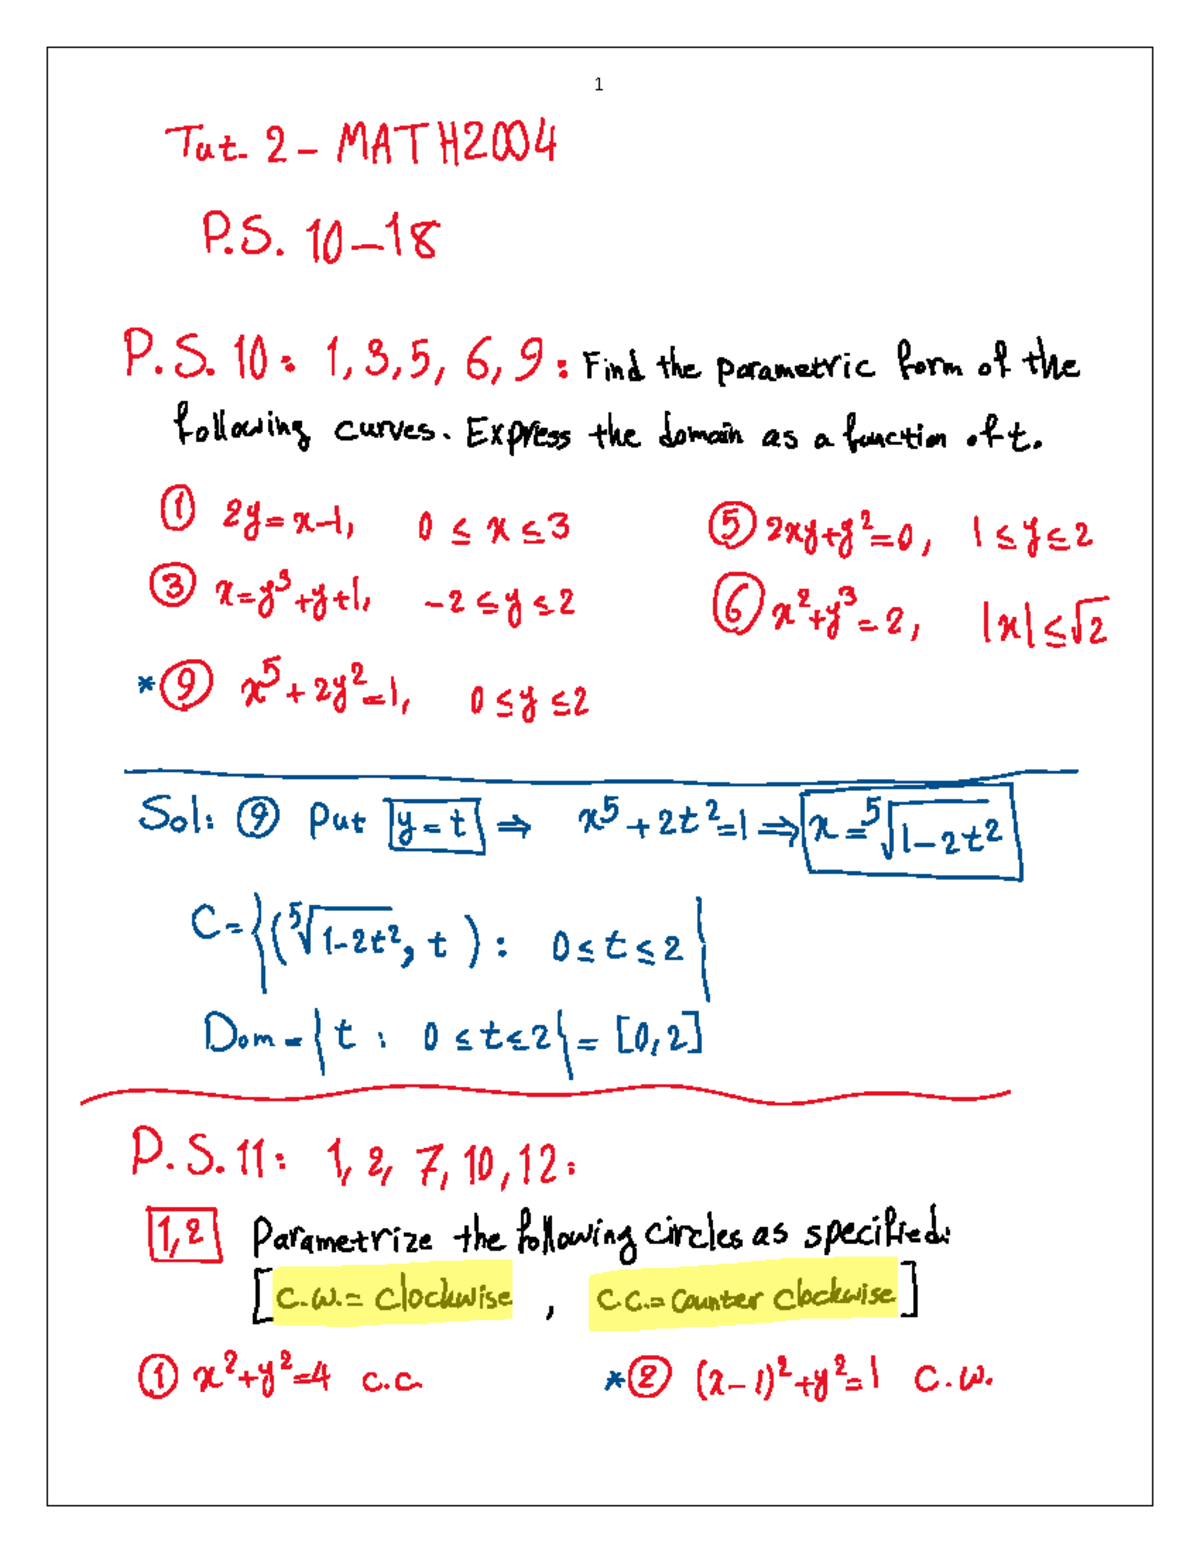 1
Tut. 2 - MATH2004
P.S. 10-18
P.S. 10: 1, 3, 5, 6, 9: Find the parametric form of the
following curves. Express the domain as a function of t.
① 2y = x-1, 0 ≤ x ≤ 3 ⑤ 2xy+y²=0, 1 ≤ y ≤ 2
③ x = y³+y+1, -2 ≤ y ≤ 2 ⑥ x²+y³=2, |x| ≤ √2
*⑨ x⁵+2y²=1, 0 ≤ y ≤ 2
Sol: ⑨ Put y=t ⇒ x⁵+2t²=1 ⇒ x = ⁵√1-2t²
C = {(⁵√1-2t², t): 0 ≤ t ≤ 2}
Dom = {t : 0 ≤ t ≤ 2} = [0, 2]
P.S. 11: 1, 2, 7, 10, 12:
1, 2 Parametrize the following circles as specified:
[c.w. = clockwise , c.c. = counter clockwise]
① x²+y²=4 c.c. *② (x-1)²+y²=1 c.w.